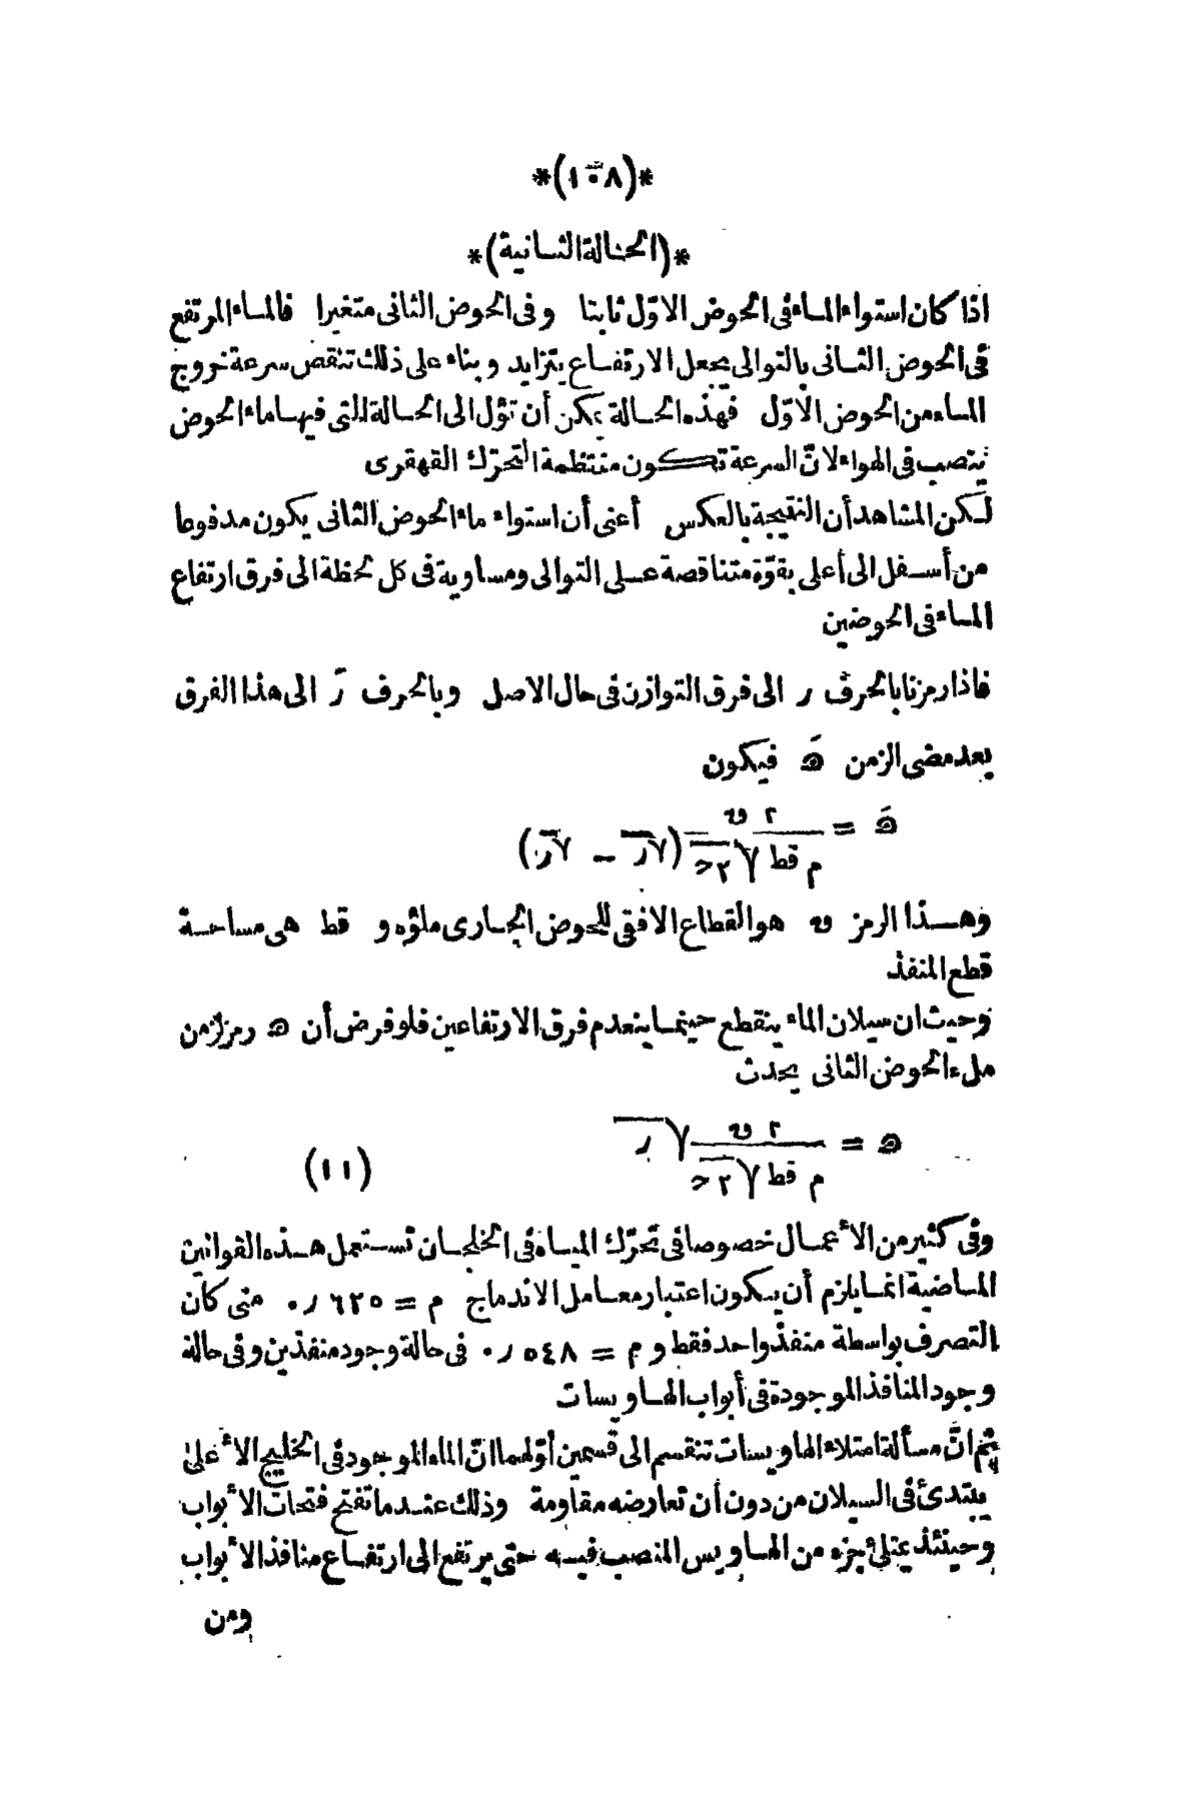 *(١٠٨)*
*(الحالة الثانية)*
اذا كان استواء الماء فى الحوض الاوّل ثابتا وفى الحوض الثانى متغيرا فالماء المرتفع
فى الحوض الثانى بالتوالى يجعل الارتفاع يتزايد وبناء على ذلك تنقص سرعة خروج
الماء من الحوض الاوّل فهذه الحالة يمكن أن تؤل الى الحالة التى فيها ماء الحوض
ينصب فى الهواء لانّ السرعة تكون منتظمة التحرّك القهقرى
لكن المشاهد أن النتيجة بالعكس أعنى أن استواء ماء الحوض الثانى يكون مدفوعا
من أسفل الى أعلى بقوّة متناقصة على التوالى ومساوية فى كل لحظة الى فرق ارتفاع
الماء فى الحوضين
فاذا رمزنا بالحرف ر الى فرق التوازن فى حال الاصل وبالحرف رَ الى هذا الفرق
بعد مضى الزمن هَ فيكون
هَ = ٢ ق / م قط √٢ح (√ر − √رَ)
وهذا الرمز ق هو القطاع الافقى للحوض الجارى ملؤه و قط هى مساحة
قطع المنفذ
وحيث ان سيلان الماء ينقطع حينما ينعدم فرق الارتفاعين فلو فرض أن ه رمز لزمن
ملء الحوض الثانى يحدث
ه = ٢ ق / م قط √٢ح √ر (١١)
وفى كثير من الأعمال خصوصا فى تحرّك المياه فى الخلجان تستعمل هذه القوانين
الماضية انما يلزم أن يكون اعتبار معامل الاندماج م = ٦٢٥ر٠ متى كان
التصرف بواسطة منفذ واحد فقط و م = ٥٤٨ر٠ فى حالة وجود منفذين وفى حالة
وجود المنافذ الموجودة فى أبواب الهاويسات
ثم انّ مسألة امتلاء الهاويسات تنقسم الى قسمين أوّلهما انّ الماء الموجود فى الخليج الأعلى
يبتدئ فى السيلان من دون أن تعارضه مقاومة وذلك عندما تفتح فتحات الأبواب
وحينئذ يمتلئ جزء من الهاويس المنصب فيه حتى يرتفع الى ارتفاع منافذ الأبواب
ومن